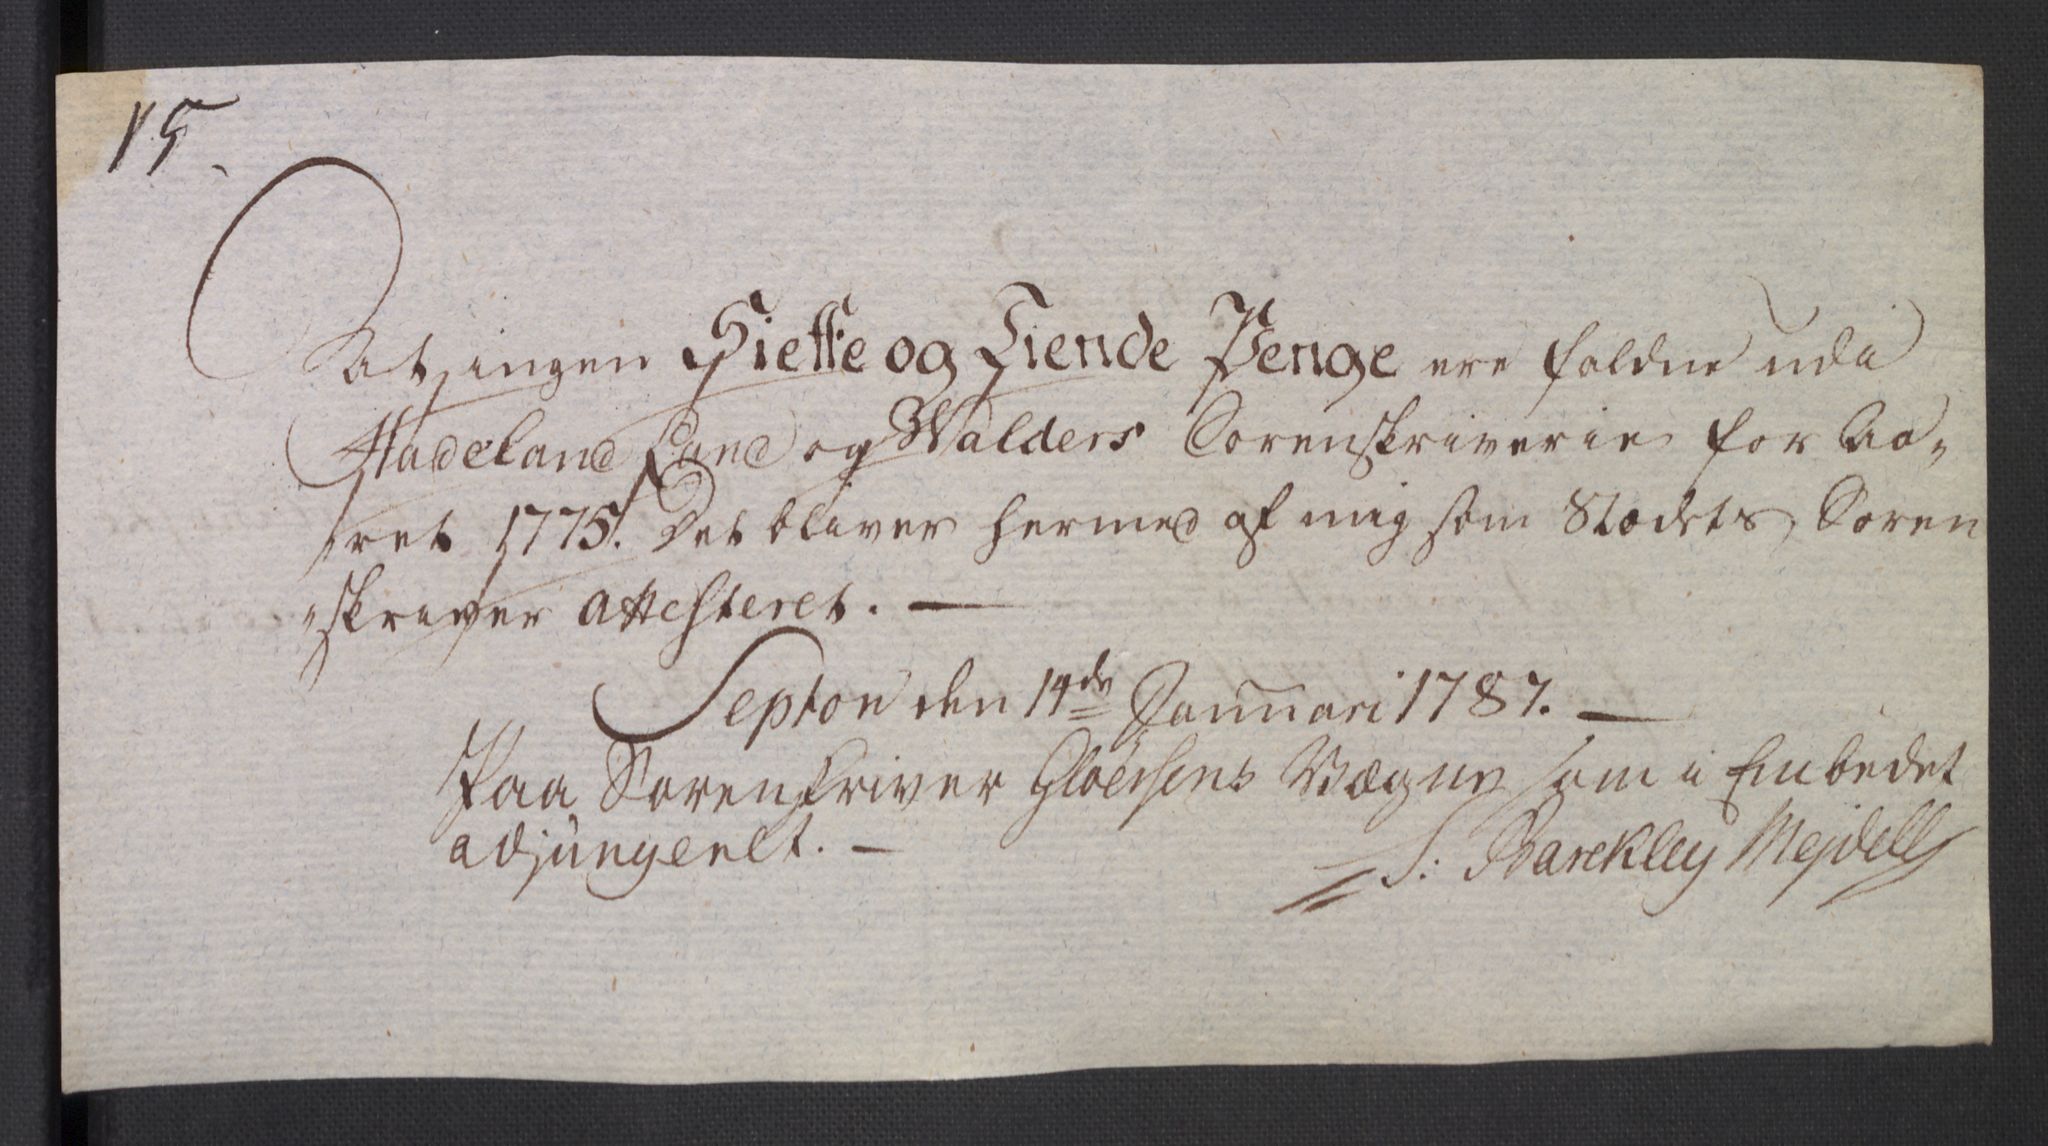 15.
At ingen Siette og Tiende Penge ere faldne udi
Hadeland Land og Walders Sorenskriverie for Aa-
ret 1775. Det bliver hermed af mig som Stædets Soren
skriver attesteret. —
Septon den 14de Januari 1787. —
Paa Sorenskriver Gloërsens Vægne som i Embedet
adjungeret. —
S: Barckley Mejdell